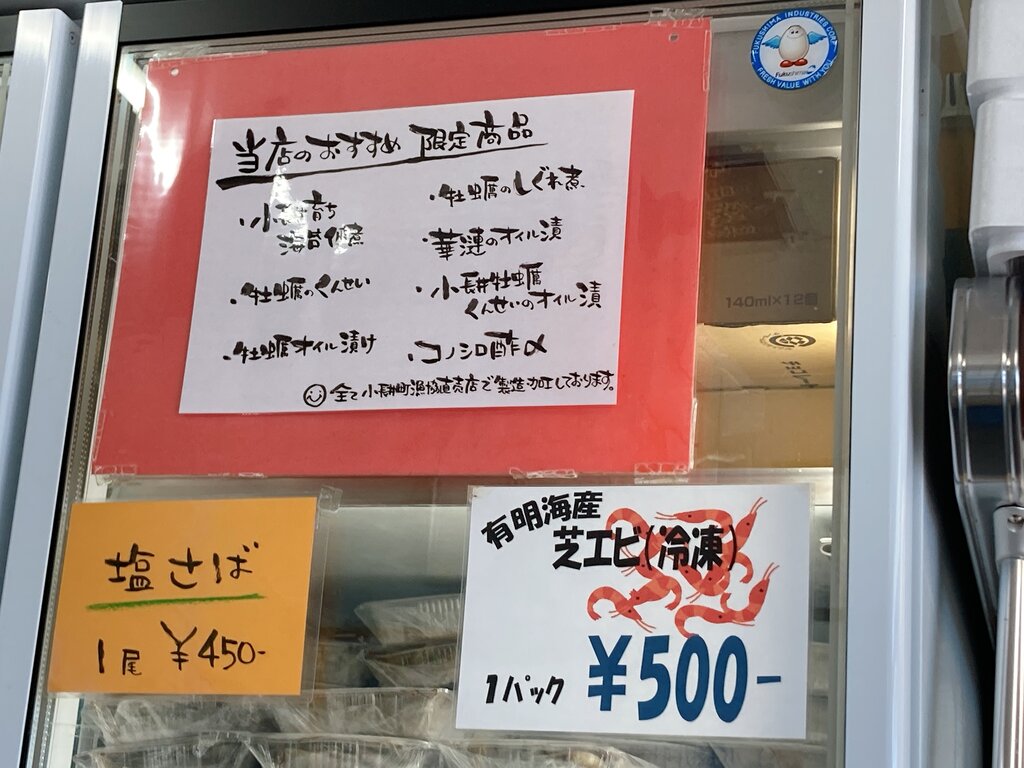 当店のおすすめ 限定商品
・小長井育ち
海苔佃煮
・牡蠣のくんせい
・牡蠣オイル漬け
・牡蠣のしぐれ煮
・華漣のオイル漬
・小長井牡蠣
くんせいのオイル漬
・コノシロ酢〆
全て小長井町漁協直売店で製造加工しております。
塩さば
1尾 ¥450-
有明海産
芝エビ(冷凍)
1パック ¥500-
FUKUSHIMA INDUSTRIES CORP.
Fukushima
FRESH VALUE WITH YOU!
140ml×12個